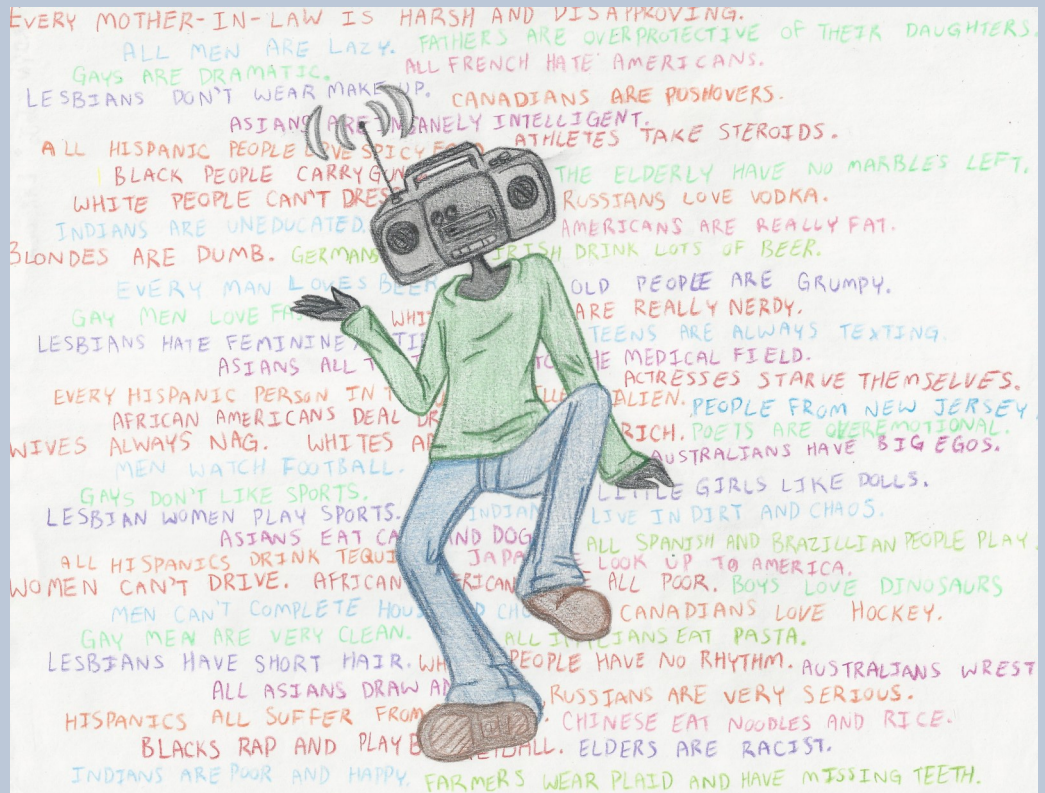 EVERY MOTHER-IN-LAW IS HARSH AND DISAPPROVING.
ALL MEN ARE LAZY. FATHERS ARE OVERPROTECTIVE OF THEIR DAUGHTERS.
GAYS ARE DRAMATIC. ALL FRENCH HATE AMERICANS.
LESBIANS DON'T WEAR MAKE UP. CANADIANS ARE PUSHOVERS.
ASIANS ARE INSANELY INTELLIGENT. ATHLETES TAKE STEROIDS.
ALL HISPANIC PEOPLE LOVE SPICY FOOD
BLACK PEOPLE CARRY GUN THE ELDERLY HAVE NO MARBLE'S LEFT.
WHITE PEOPLE CAN'T DRES RUSSIANS LOVE VODKA.
INDIANS ARE UNEDUCATED. AMERICANS ARE REALLY FAT.
BLONDES ARE DUMB. GERMANS IRISH DRINK LOTS OF BEER.
EVERY MAN LOVES BEER OLD PEOPLE ARE GRUMPY.
GAY MEN LOVE FA WHIT ARE REALLY NERDY.
LESBIANS HATE FEMININE TIE TEENS ARE ALWAYS TEXTING.
ASIANS ALL T TO HE MEDICAL FIELD.
EVERY HISPANIC PERSON IN T LLE ALIEN. ACTRESSES STARVE THEMSELVES.
AFRICAN AMERICANS DEAL DR PEOPLE FROM NEW JERSEY
WIVES ALWAYS NAG. WHITES AR RICH. POETS ARE OVEREMOTIONAL.
MEN WATCH FOOTBALL. AUSTRALIANS HAVE BIG EGOS.
GAYS DON'T LIKE SPORTS. LITTLE GIRLS LIKE DOLLS.
LESBIAN WOMEN PLAY SPORTS. INDIAN LIVE IN DIRT AND CHAOS.
ASIANS EAT CA ND DOG ALL SPANISH AND BRAZILLIAN PEOPLE PLAY
ALL HISPANICS DRINK TEQUI JAPA E LOOK UP TO AMERICA.
WOMEN CAN'T DRIVE. AFRICAN ERICAN ALL POOR. BOYS LOVE DINOSAURS
MEN CAN'T COMPLETE HOU D CHO CANADIANS LOVE HOCKEY.
GAY MEN ARE VERY CLEAN. ALL ITALIANS EAT PASTA.
LESBIANS HAVE SHORT HAIR. WH PEOPLE HAVE NO RHYTHM. AUSTRALIANS WREST
ALL ASIANS DRAW AN RUSSIANS ARE VERY SERIOUS.
HISPANICS ALL SUFFER FROM CHINESE EAT NOODLES AND RICE.
BLACKS RAP AND PLAY B KETBALL. ELDERS ARE RACIST.
INDIANS ARE POOR AND HAPPY. FARMERS WEAR PLAID AND HAVE MISSING TEETH.